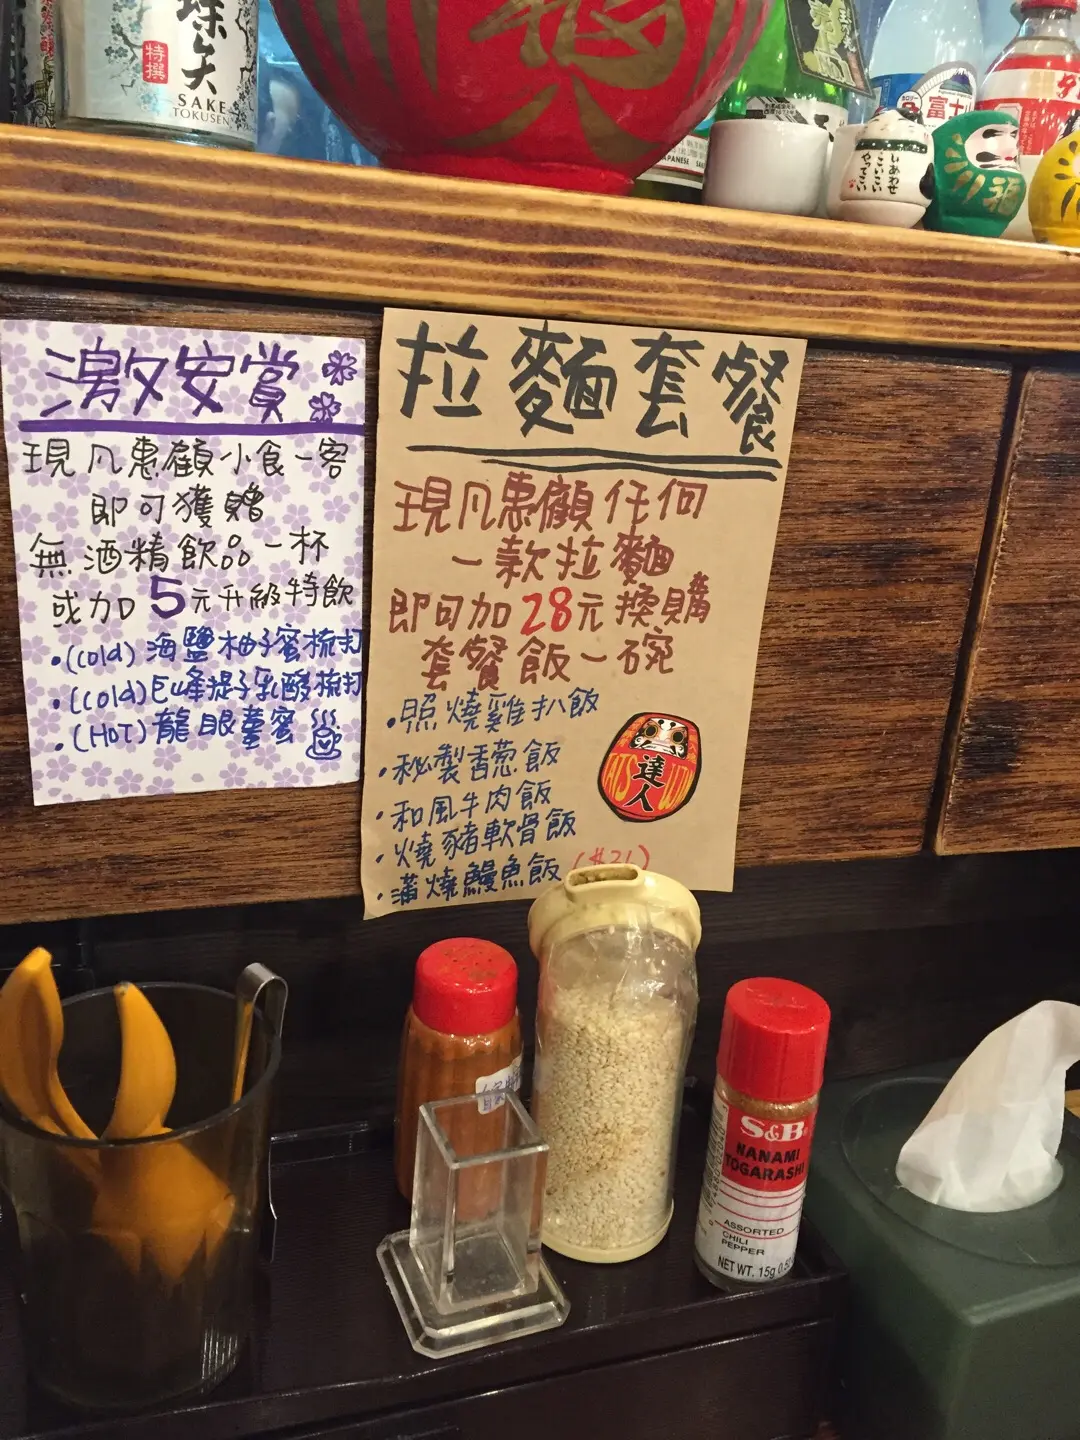 特撰
SAKE
TOKUSEN
富士
しあわせ
こいこい
やってこい
福
激安賞
現凡惠顧小食一客
即可獲贈
無酒精飲品一杯
或加5元升級特飲
•(cold)海鹽柚子蜜梳打
•(cold)巨峰提子乳酸梳打
•(HOT)龍眼薑蜜
拉麵套餐
現凡惠顧任何
一款拉麵
即可加28元換購
套餐飯一碗
•照燒雞扒飯
•秘製香葱飯
•和風牛肉飯
•燒豬軟骨飯
•蒲燒鰻魚飯
達人
S&B
NANAMI
TOGARASHI
ASSORTED
CHILI
PEPPER
NET WT. 15g